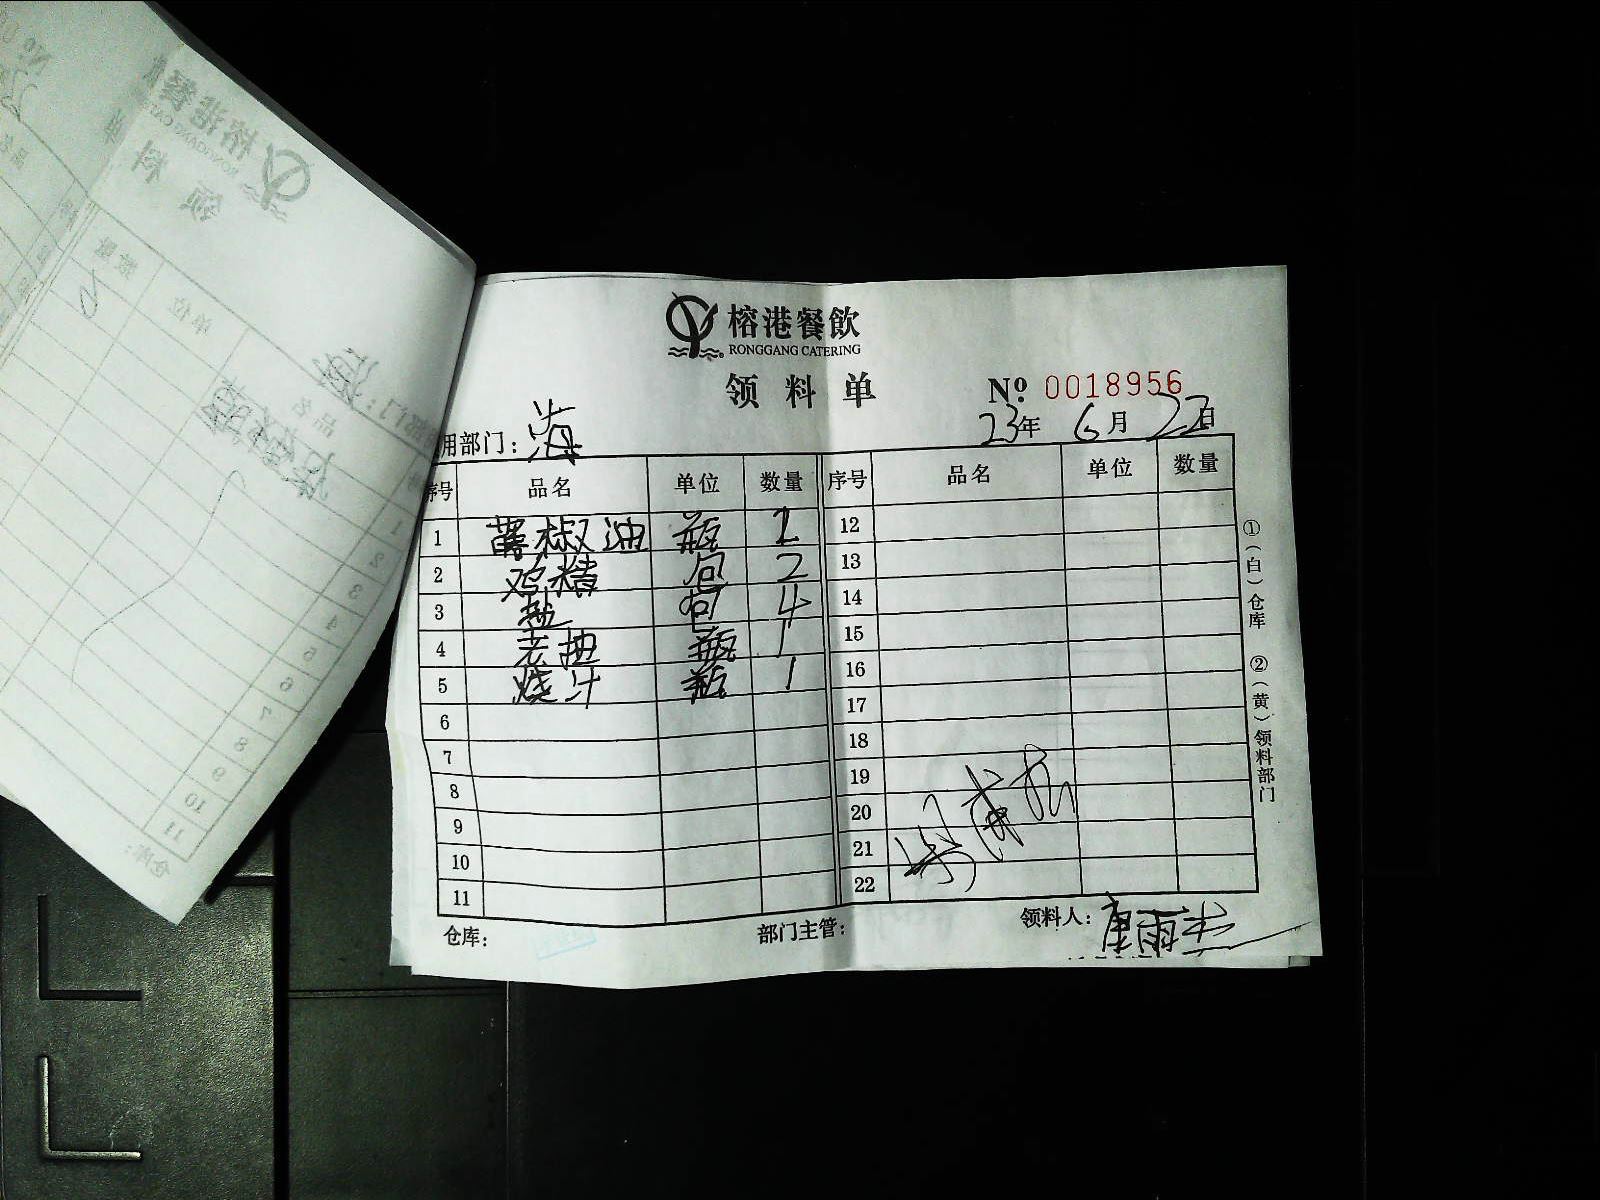 榕港餐飲
RONGGANG CATERING
领料单
№ 0018956
23年 6月 22日
用部门：海
序号 品名 单位 数量 序号 品名 单位 数量
1 藤椒油 瓶 2 12
2 鸡精 包 2 13
3 盐 包 4 14
4 老抽 瓶 1 15
5 烧汁 瓶 1 16
6 17
7 18
8 19
9 20
10 21
11 22
仓库： 部门主管： 领料人：
①（白）仓库 ②（黄）领料部门